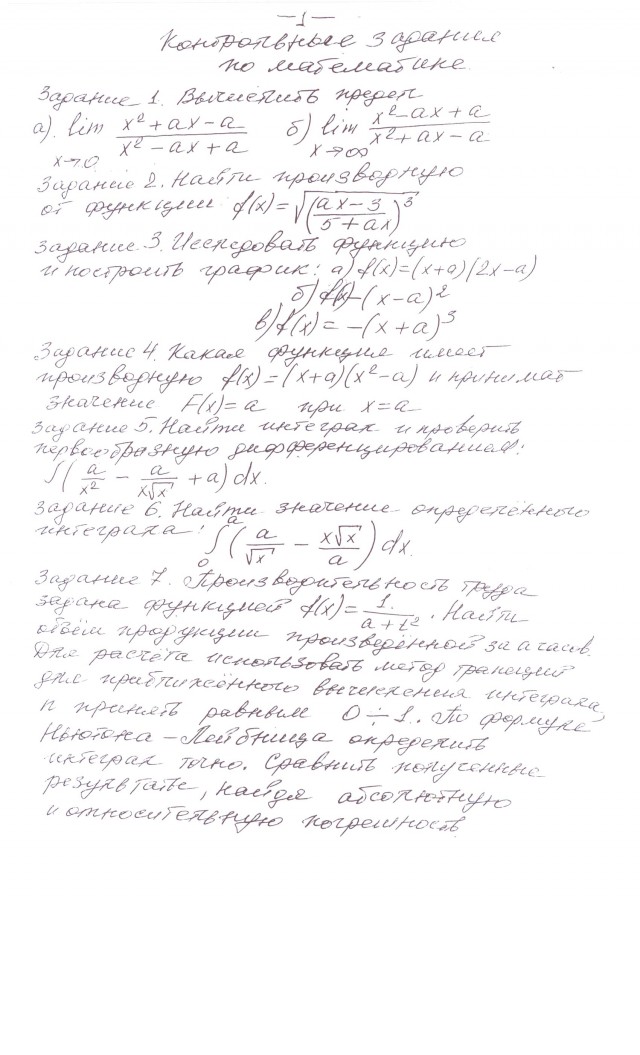 — 1 —
Контрольные задания
по математике.
Задание 1. Вычислить предел
а). lim x→0 (x² + ax − a)/(x² − ax + a) б) lim x→∞ (x² − ax + a)/(x² + ax − a)
Задание 2. Найти производную
от функции f(x) = √((ax − 3)/(5 + ax))³
Задание 3. Исследовать функцию
и построить график: а) f(x) = (x+a)(2x−a)
б) f(x) − (x − a)²
в) f(x) = −(x + a)³
Задание 4. Какая функция имеет
производную f(x) = (x+a)(x²−a) и принимает
значение F(x) = a при x = a
Задание 5. Найти интеграл и проверить
первообразную дифференцированием:
∫(a/x² − a/(x√x) + a) dx.
Задание 6. Найти значение определённого
интеграла: ∫₀ᵃ (a/√x − x√x/a) dx.
Задание 7. Производительность труда
задана функцией f(x) = 1/(a + t²). Найти
объём продукции произведённой за а часов.
Для расчёта использовать метод трапеций
для приближённого вычисления интеграла,
n принять равным 0 ÷ 1. По формуле
Ньютона – Лейбница определить
интеграл точно. Сравнить полученные
результаты, найдя абсолютную
и относительную погрешность